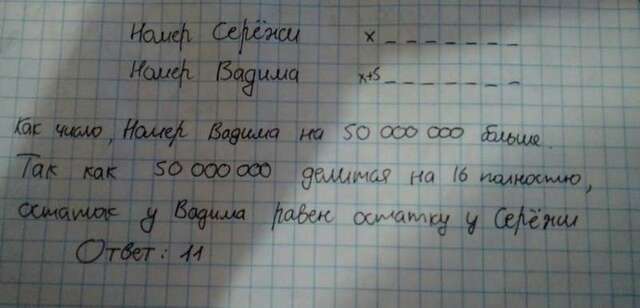 Номер Серёжи x _ _ _ _ _ _ _
Номер Вадима x+5 _ _ _ _ _ _ _
Как число, Номер Вадима на 50 000 000 больше.
Так как 50 000 000 делится на 16 полностью,
остаток у Вадима равен остатку у Серёжи
Ответ: 11